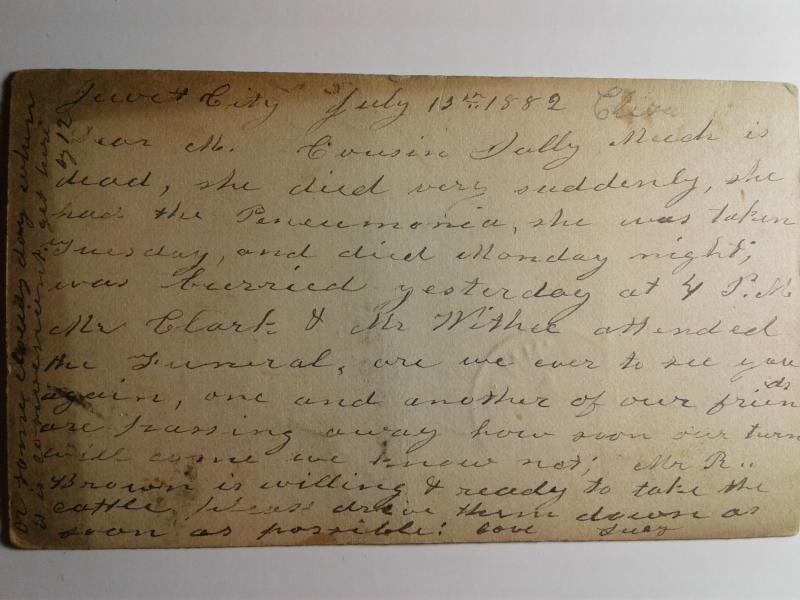 Jewet City July 13th 1882
Dear M. Cousin Dolly Meech is
dead, she died very suddenly, she
had the Peneumonia, she was taken
Tuesday, and died Monday night;
was burried yesterday at 4 P.M
Mr Clark & Mr Withee attended
the Funeral, are we ever to see you
again, one and another of our friends
are passing away how soon our turn
will come we know not; Mr R..
Brown is willing & ready to take the
cattle please drive them down as
soon as possible! love
or some cloudy day when
it is convenient, get here
by 12